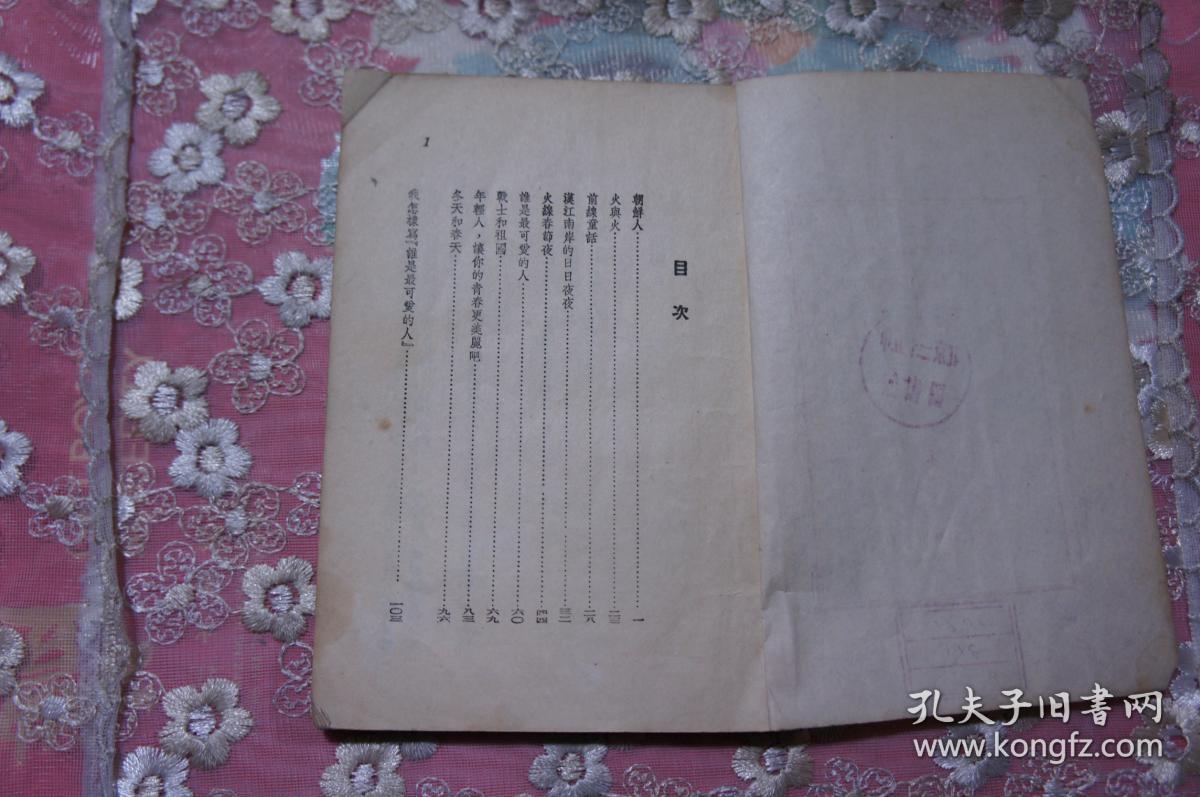 目次
朝鮮人……一
火與火……二三
前線童話……二八
漢江南岸的日日夜夜……三二
火線春節夜……四四
誰是最可愛的人……六〇
戰士和祖國……六九
年輕人，讓你的青春更美麗吧……八三
冬天和春天……九六
我怎樣寫『誰是最可愛的人』……一〇三
1
孔夫子旧书网
www.kongfz.com